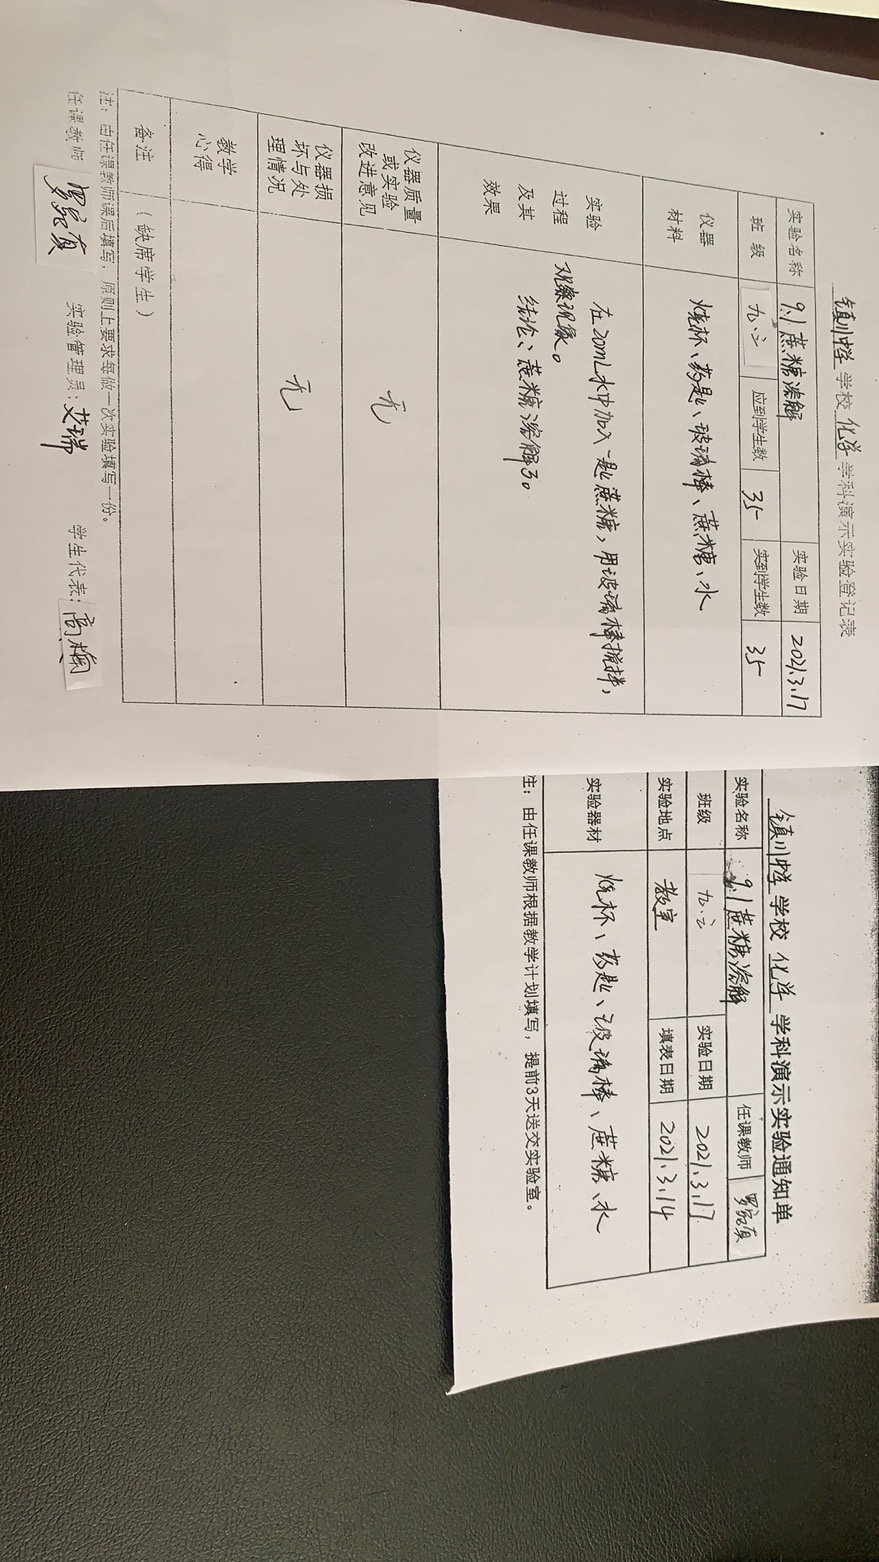 镇川中学 学校 化学 学科演示实验登记表
实验名称 9.1蔗糖溶解 实验日期 2021.3.17
班级 九.二 应到学生数 35 实到学生数 35
仪器材料 烧杯、药匙、玻璃棒、蔗糖、水
实验过程及其效果
在20mL水中加入一匙蔗糖，用玻璃棒搅拌，
观察现象。
结论、蔗糖溶解了。
仪器质量或实验改进意见 无
仪器损坏与处理情况 无
教学心得
备注 （缺席学生）
注：由任课教师课后填写，原则上要求每做一次实验填写一份。
任课教师 实验管理员：艾瑞 学生代表：高
镇川中学 学校 化学 学科演示实验通知单
实验名称 9.1蔗糖溶解 任课教师
班级 九.二 实验日期 2021.3.17
实验地点 教室 填表日期 2021.3.14
实验器材 烧杯、药匙、玻璃棒、蔗糖、水
注：由任课教师根据教学计划填写，提前3天送交实验室。